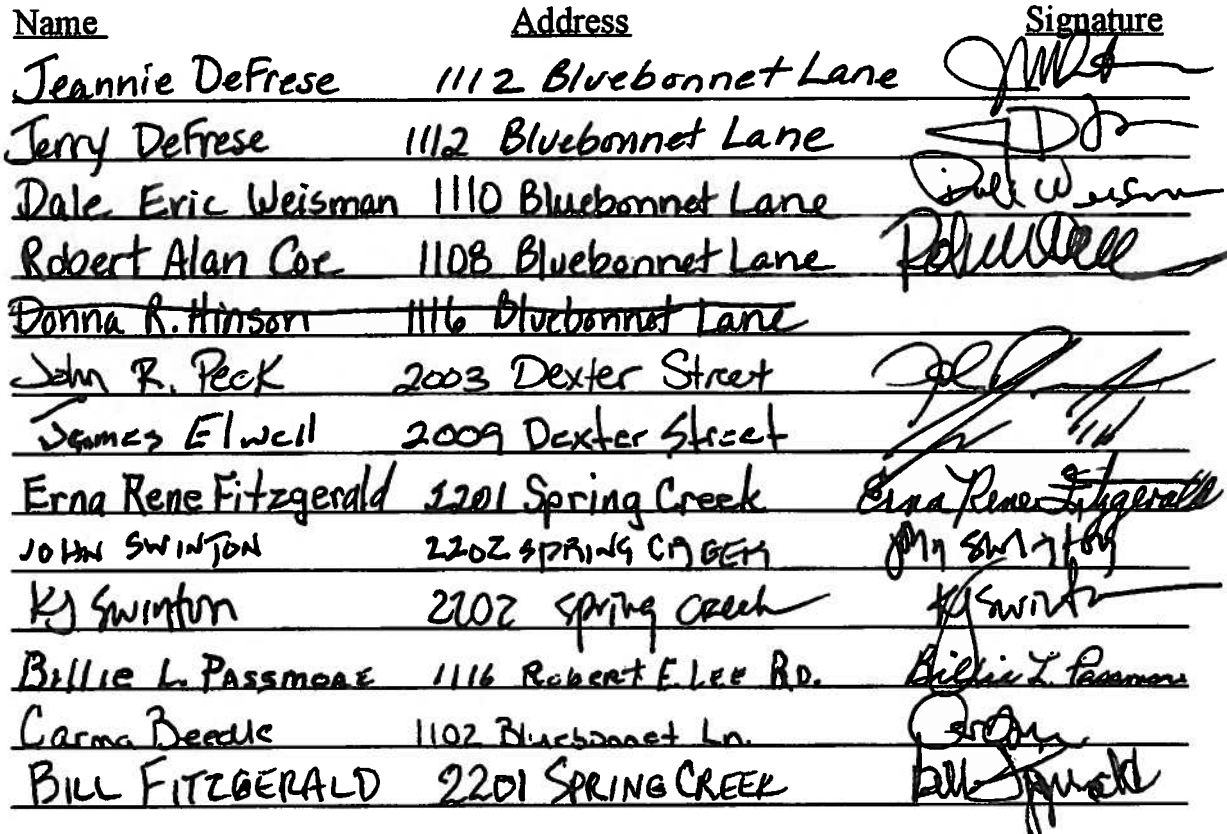 Name Address Signature
Jeannie DeFrese 1112 Bluebonnet Lane
Jerry DeFrese 1112 Bluebonnet Lane
Dale Eric Weisman 1110 Bluebonnet Lane Dale Weisman
Robert Alan Coe 1108 Bluebonnet Lane
Donna R. Hinson 1116 Bluebonnet Lane
John R. Peck 2003 Dexter Street
James Elwell 2009 Dexter Street
Erna Rene Fitzgerald 2201 Spring Creek Erna Rene Fitzgerald
JOHN SWINTON 2202 SPRING CREEK John Swinton
KJ Swinton 2202 Spring Creek KJ Swinton
Billie L. PASSMORE 1116 ROBERT E. LEE RD. Billie L. Passmore
Carma Beedle 1102 Bluebonnet Ln.
BILL FITZGERALD 2201 SPRING CREEK Bill Fitzgerald